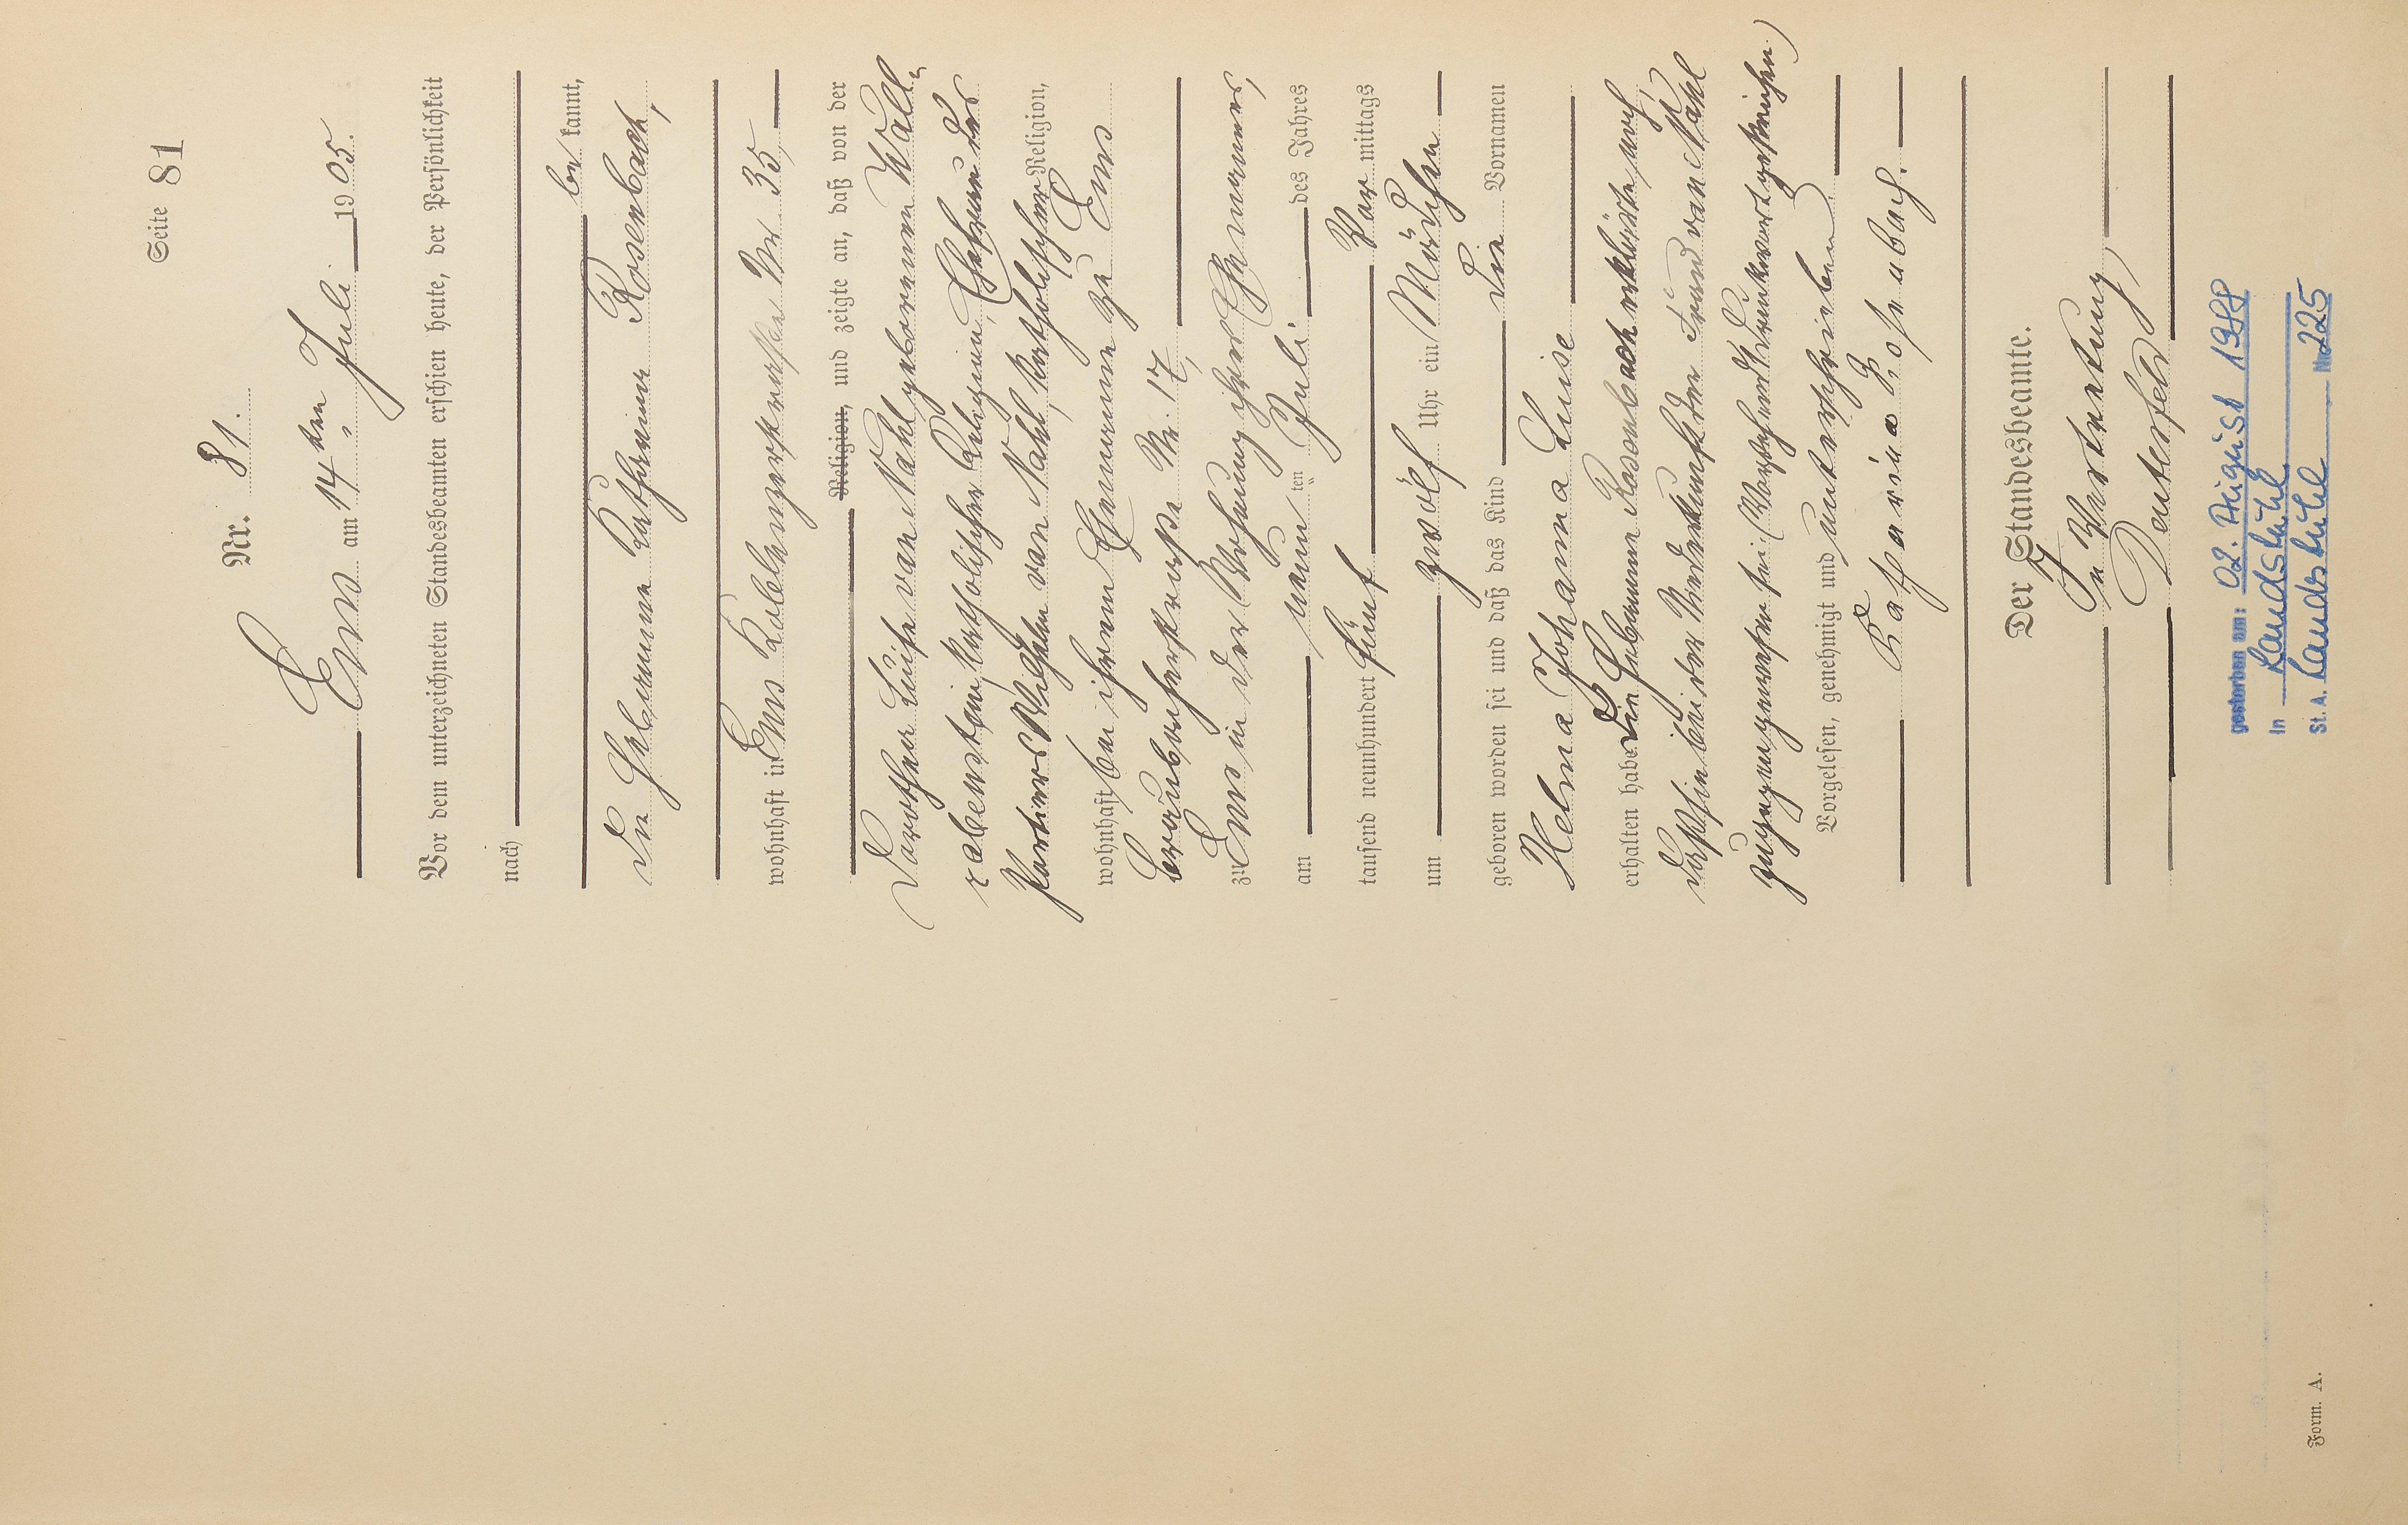 Seite 81
Nr. 81.
Ems am 14ten Juli 1905.
Vor dem unterzeichneten Standesbeamten erschien heute, der Persönlichkeit
nach
be kannt,
die Hebamme Katharina Rosenbach,
wohnhaft in Ems Koblenzerstraße Nr 35,
Religion, und zeigte an, daß von der
Dorothea Luise van Nahl geborenen Wall-
rabenstein katholischer Religion, Ehefrau des
Portiers Wilhelm van Nahl, katholischer Religion,
wohnhaft bei ihrem Ehemanne zu Ems
Braubacherstraße Nr. 17,
zu Ems in der Wohnung ihres Ehemannes,
am neun ten Juli des Jahres
tausend neunhundert fünf Vor mittags
um zwölf Uhr ein Mädchen
geboren worden sei und daß das Kind die Vornamen
Helma Johanna Luise
erhalten habe. Die Hebamme Rosenbach erklärte noch,
daß sie bei der Niederkunft der Frau van Nahl
zugegen gewesen sei. (Vorstehend Druckwort gestrichen.)
Vorgelesen, genehmigt und unterschrieben
Katharina Rosenbach.
Der Standesbeamte.
In Vertretung,
Deutesfeld
gestorben am: 02. August 1988
in Landstuhl
St. A. Landstuhl Nr. 225
Form. A.